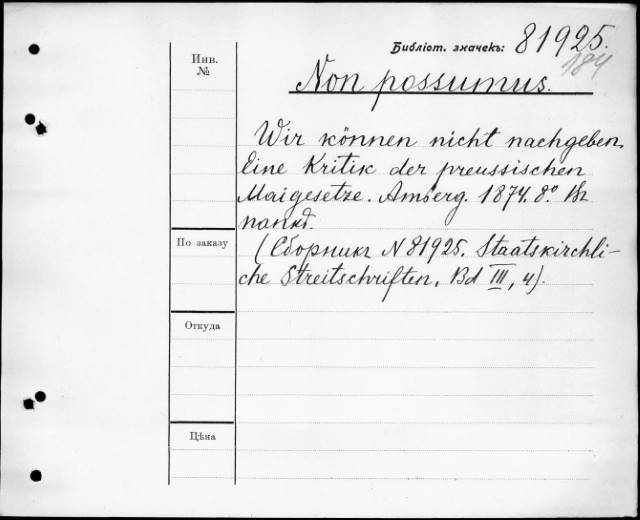 Библіот. значекъ: 81925.
184
Инв.
№
Non possumus.
Wir können nicht nachgeben.
Eine Kritik der preussischen
Maigesetze. Amberg. 1874. 8.° Въ
папкѣ.
По заказу
(Сборникъ N 81925. Staatskirchli-
che Streitschriften, Bd III, 4).
Откуда
Цѣна